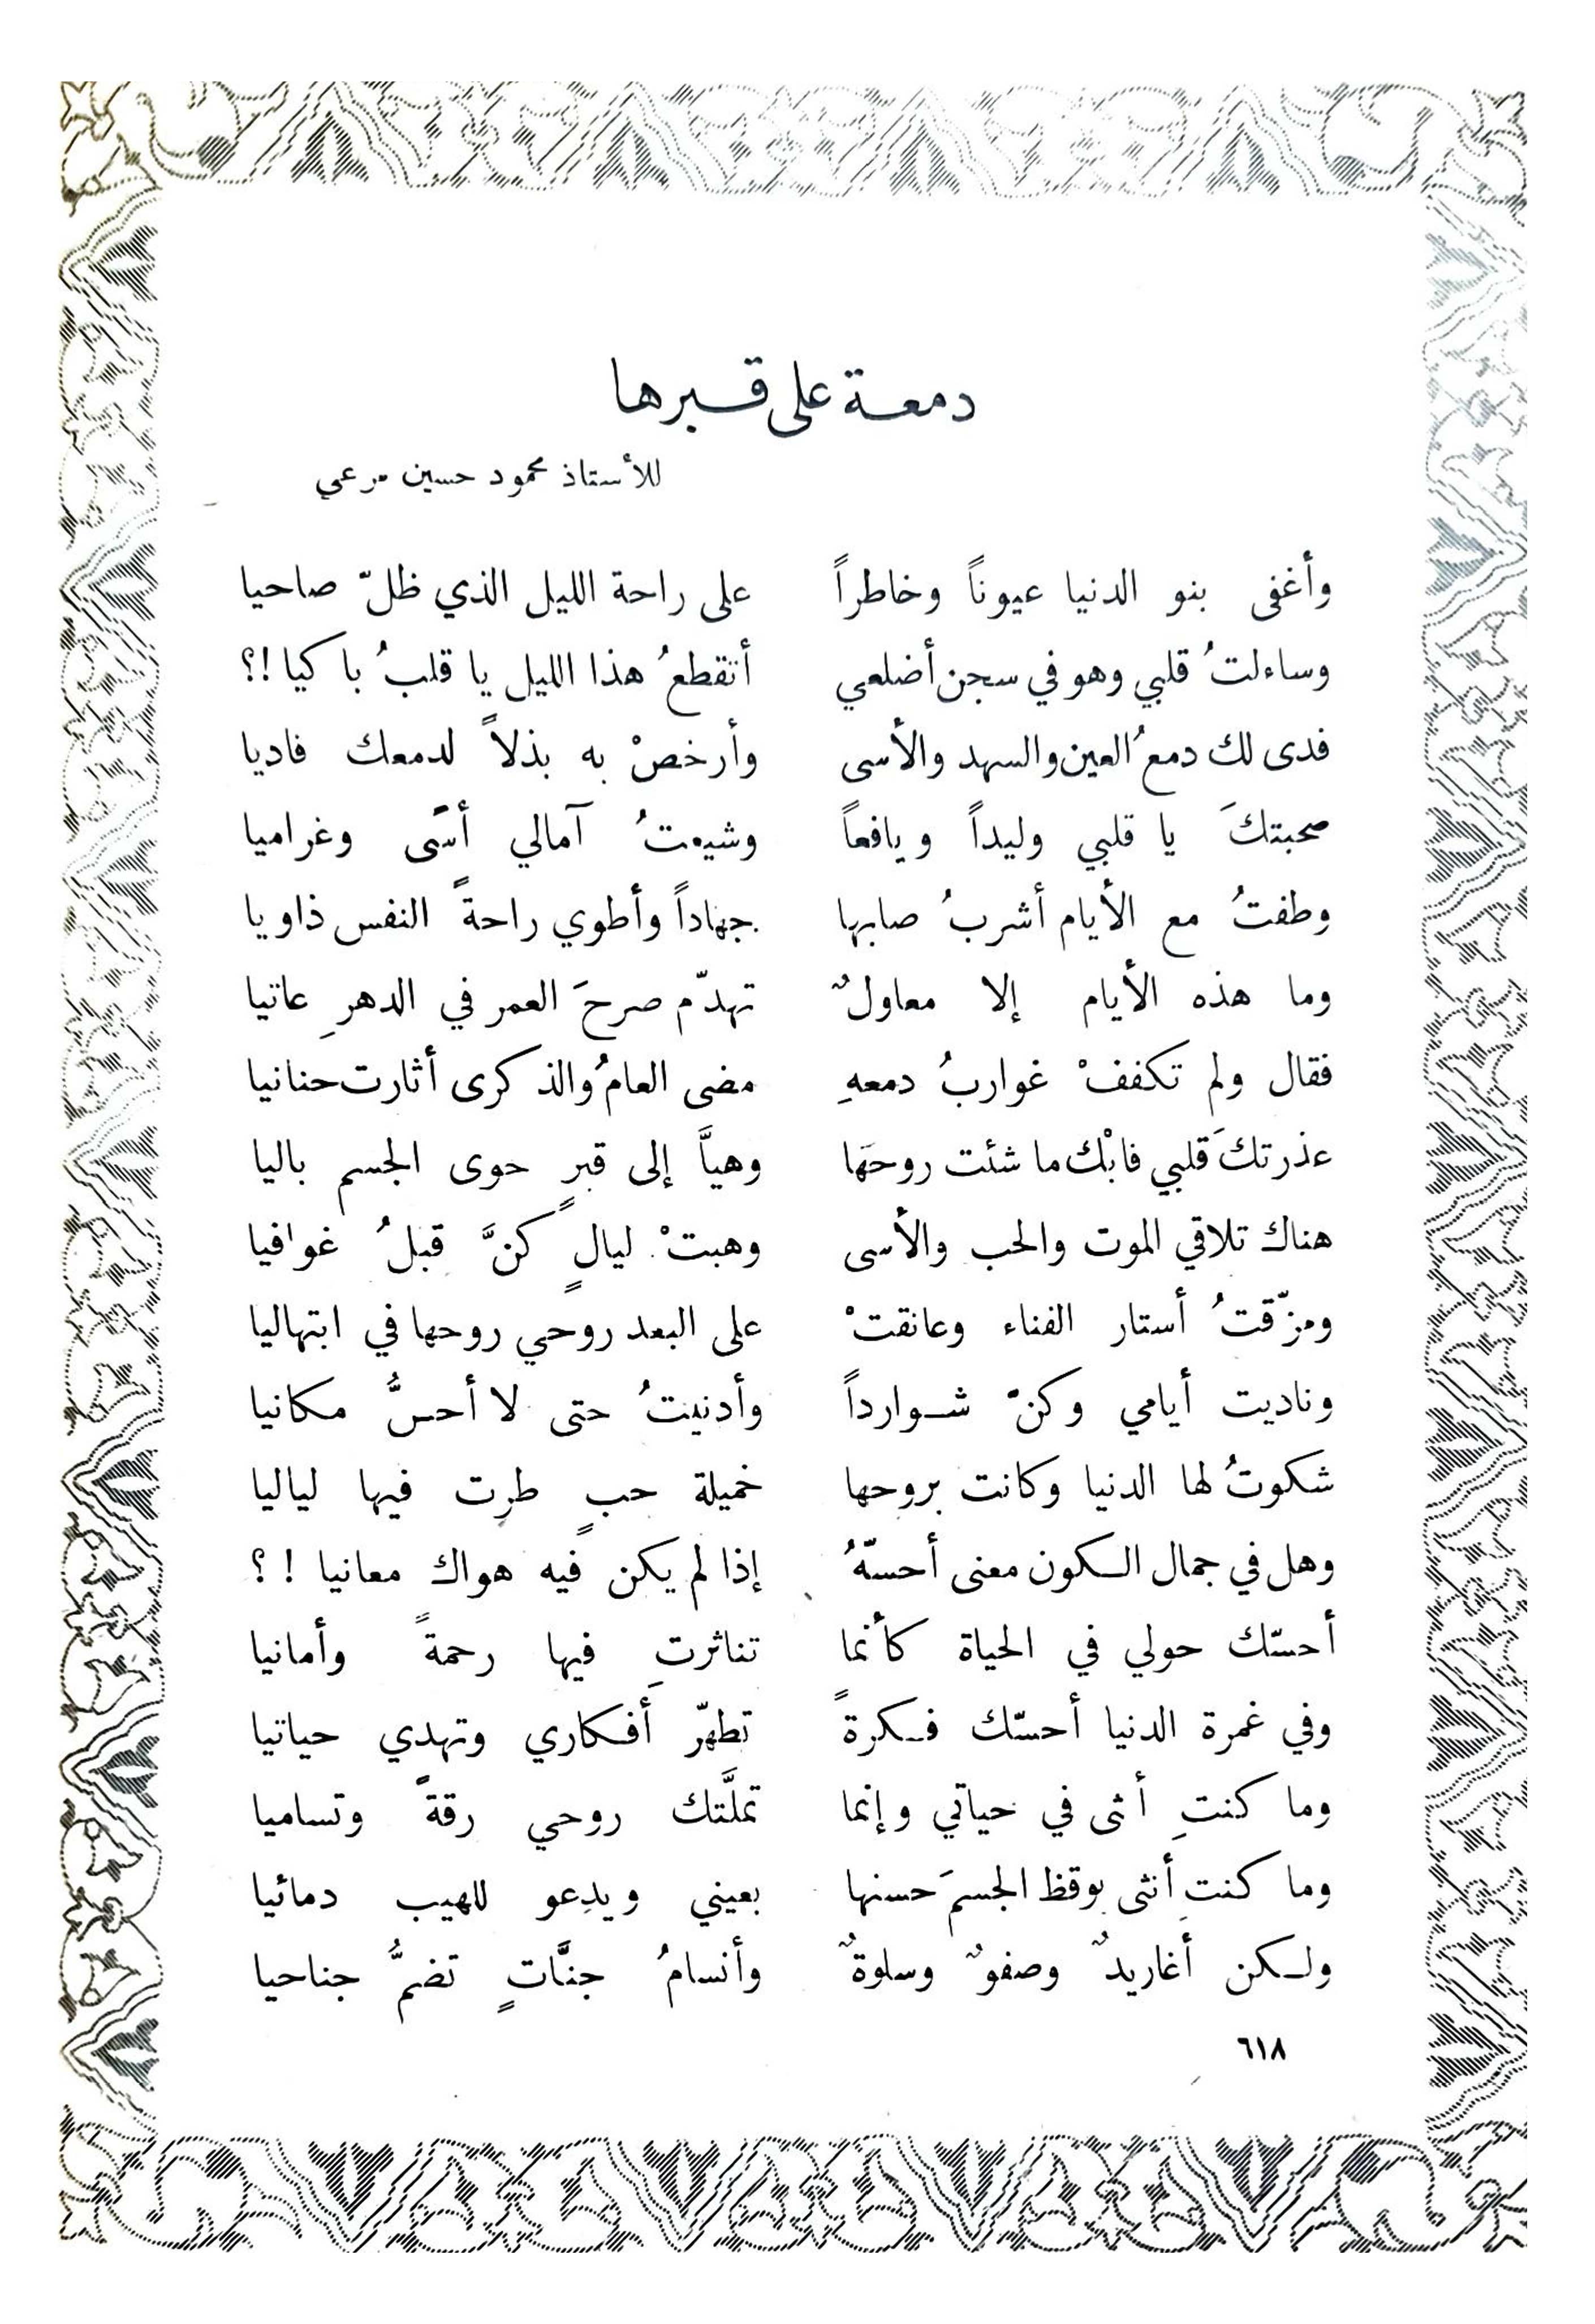 دمعة على قبرها
للأستاذ محمود حسين مرعي
وأغفى بنو الدنيا عيوناً وخاطراً على راحة الليل الذي ظلّ صاحيا
وساءلتُ قلبي وهو في سجن أضلعي أتقطعُ هذا الليل يا قلبُ باكيا !؟
فدى لك دمعُ العين والسهد والأسى وأرخصْ به بذلاً لدمعك فاديا
صحبتكَ يا قلبي وليداً ويافعاً وشيعتُ آمالي أسًى وغراميا
وطفتُ مع الأيام أشربُ صابها جهاداً وأطوي راحةً النفس ذاويا
وما هذه الأيام إلا معاولٌ تهدّم صرحَ العمر في الدهرِ عاتيا
فقال ولم تكففْ غواربُ دمعهِ مضى العامُ والذكرى أثارت حنانيا
عذرتكَ قلبي فابْك ما شئت روحَها وهيَّا إلى قبرٍ حوى الجسم باليا
هناك تلاقي الموت والحب والأسى وهبتْ ليالٍ كنَّ قبلُ غوافيا
ومزّقتُ أستار الفناء وعانقتْ على البعد روحي روحها في ابتهاليا
وناديت أيامي وكنّ شوارداً وأدنيتُ حتى لا أحسُّ مكانيا
شكوتُ لها الدنيا وكانت بروحها خميلة حبٍ طرت فيها لياليا
وهل في جمال الكون معنى أحسّهُ إذا لم يكن فيه هواك معانيا ! ؟
أحسّك حولي في الحياة كأنما تناثرتِ فيها رحمةً وأمانيا
وفي غمرة الدنيا أحسّك فكرةً تطهّر أفكاري وتهدي حياتيا
وما كنتِ أنثى في حياتي وإنما تملَّتك روحي رقةً وتساميا
وما كنتِ أنثى يوقظ الجسمَ حسنها بعيني ويدعو للهيب دمائيا
ولكن أغاريدٌ وصفوٌ وسلوةٌ وأنسامُ جنَّاتٍ تضمُّ جناحيا
٦١٨